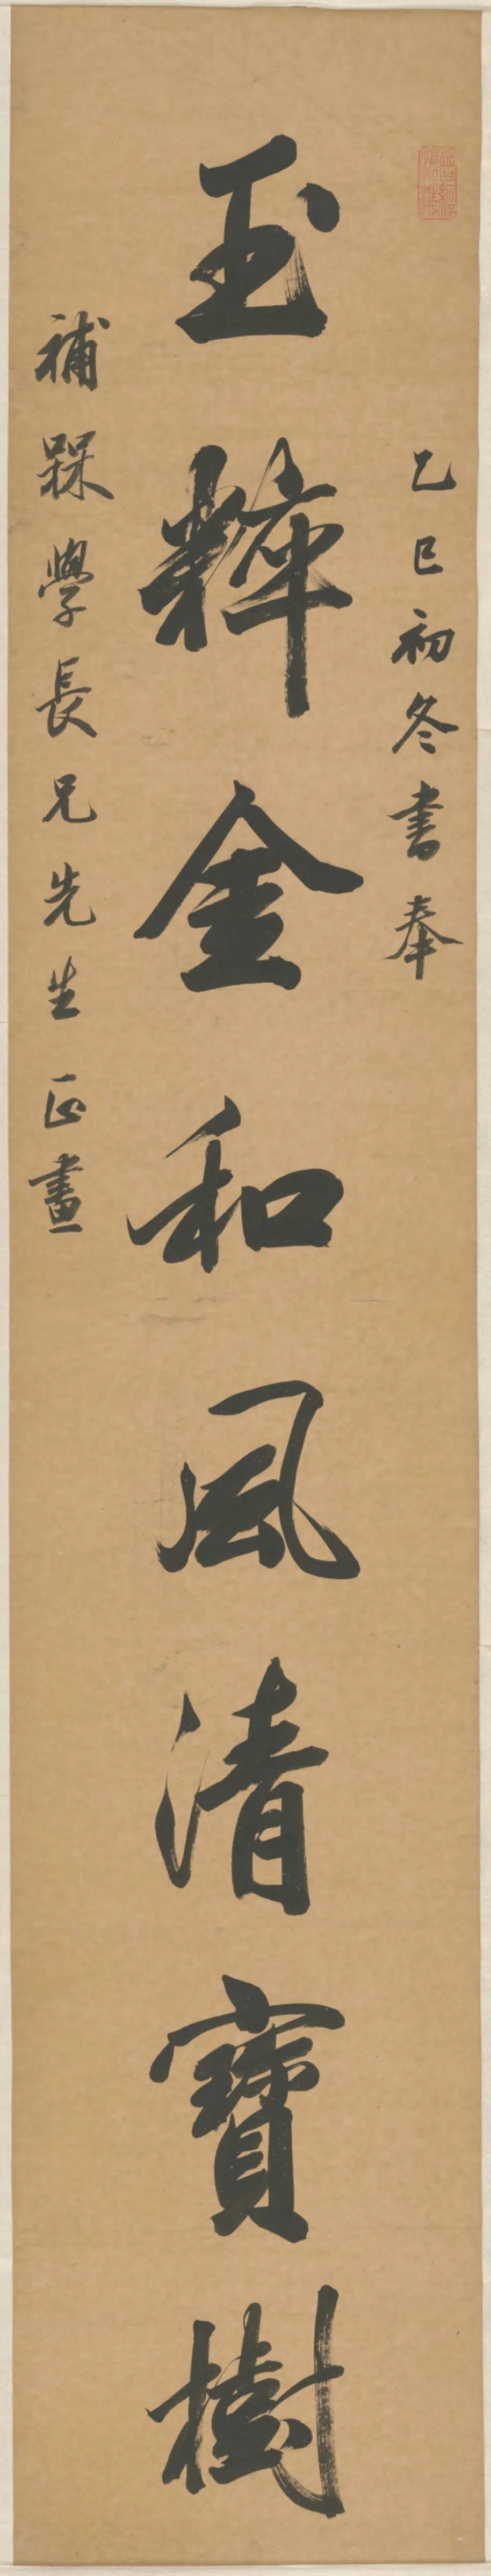 乙巳初冬書奉
玉粹金和風清寶樹
補槑學長兄先生正畫